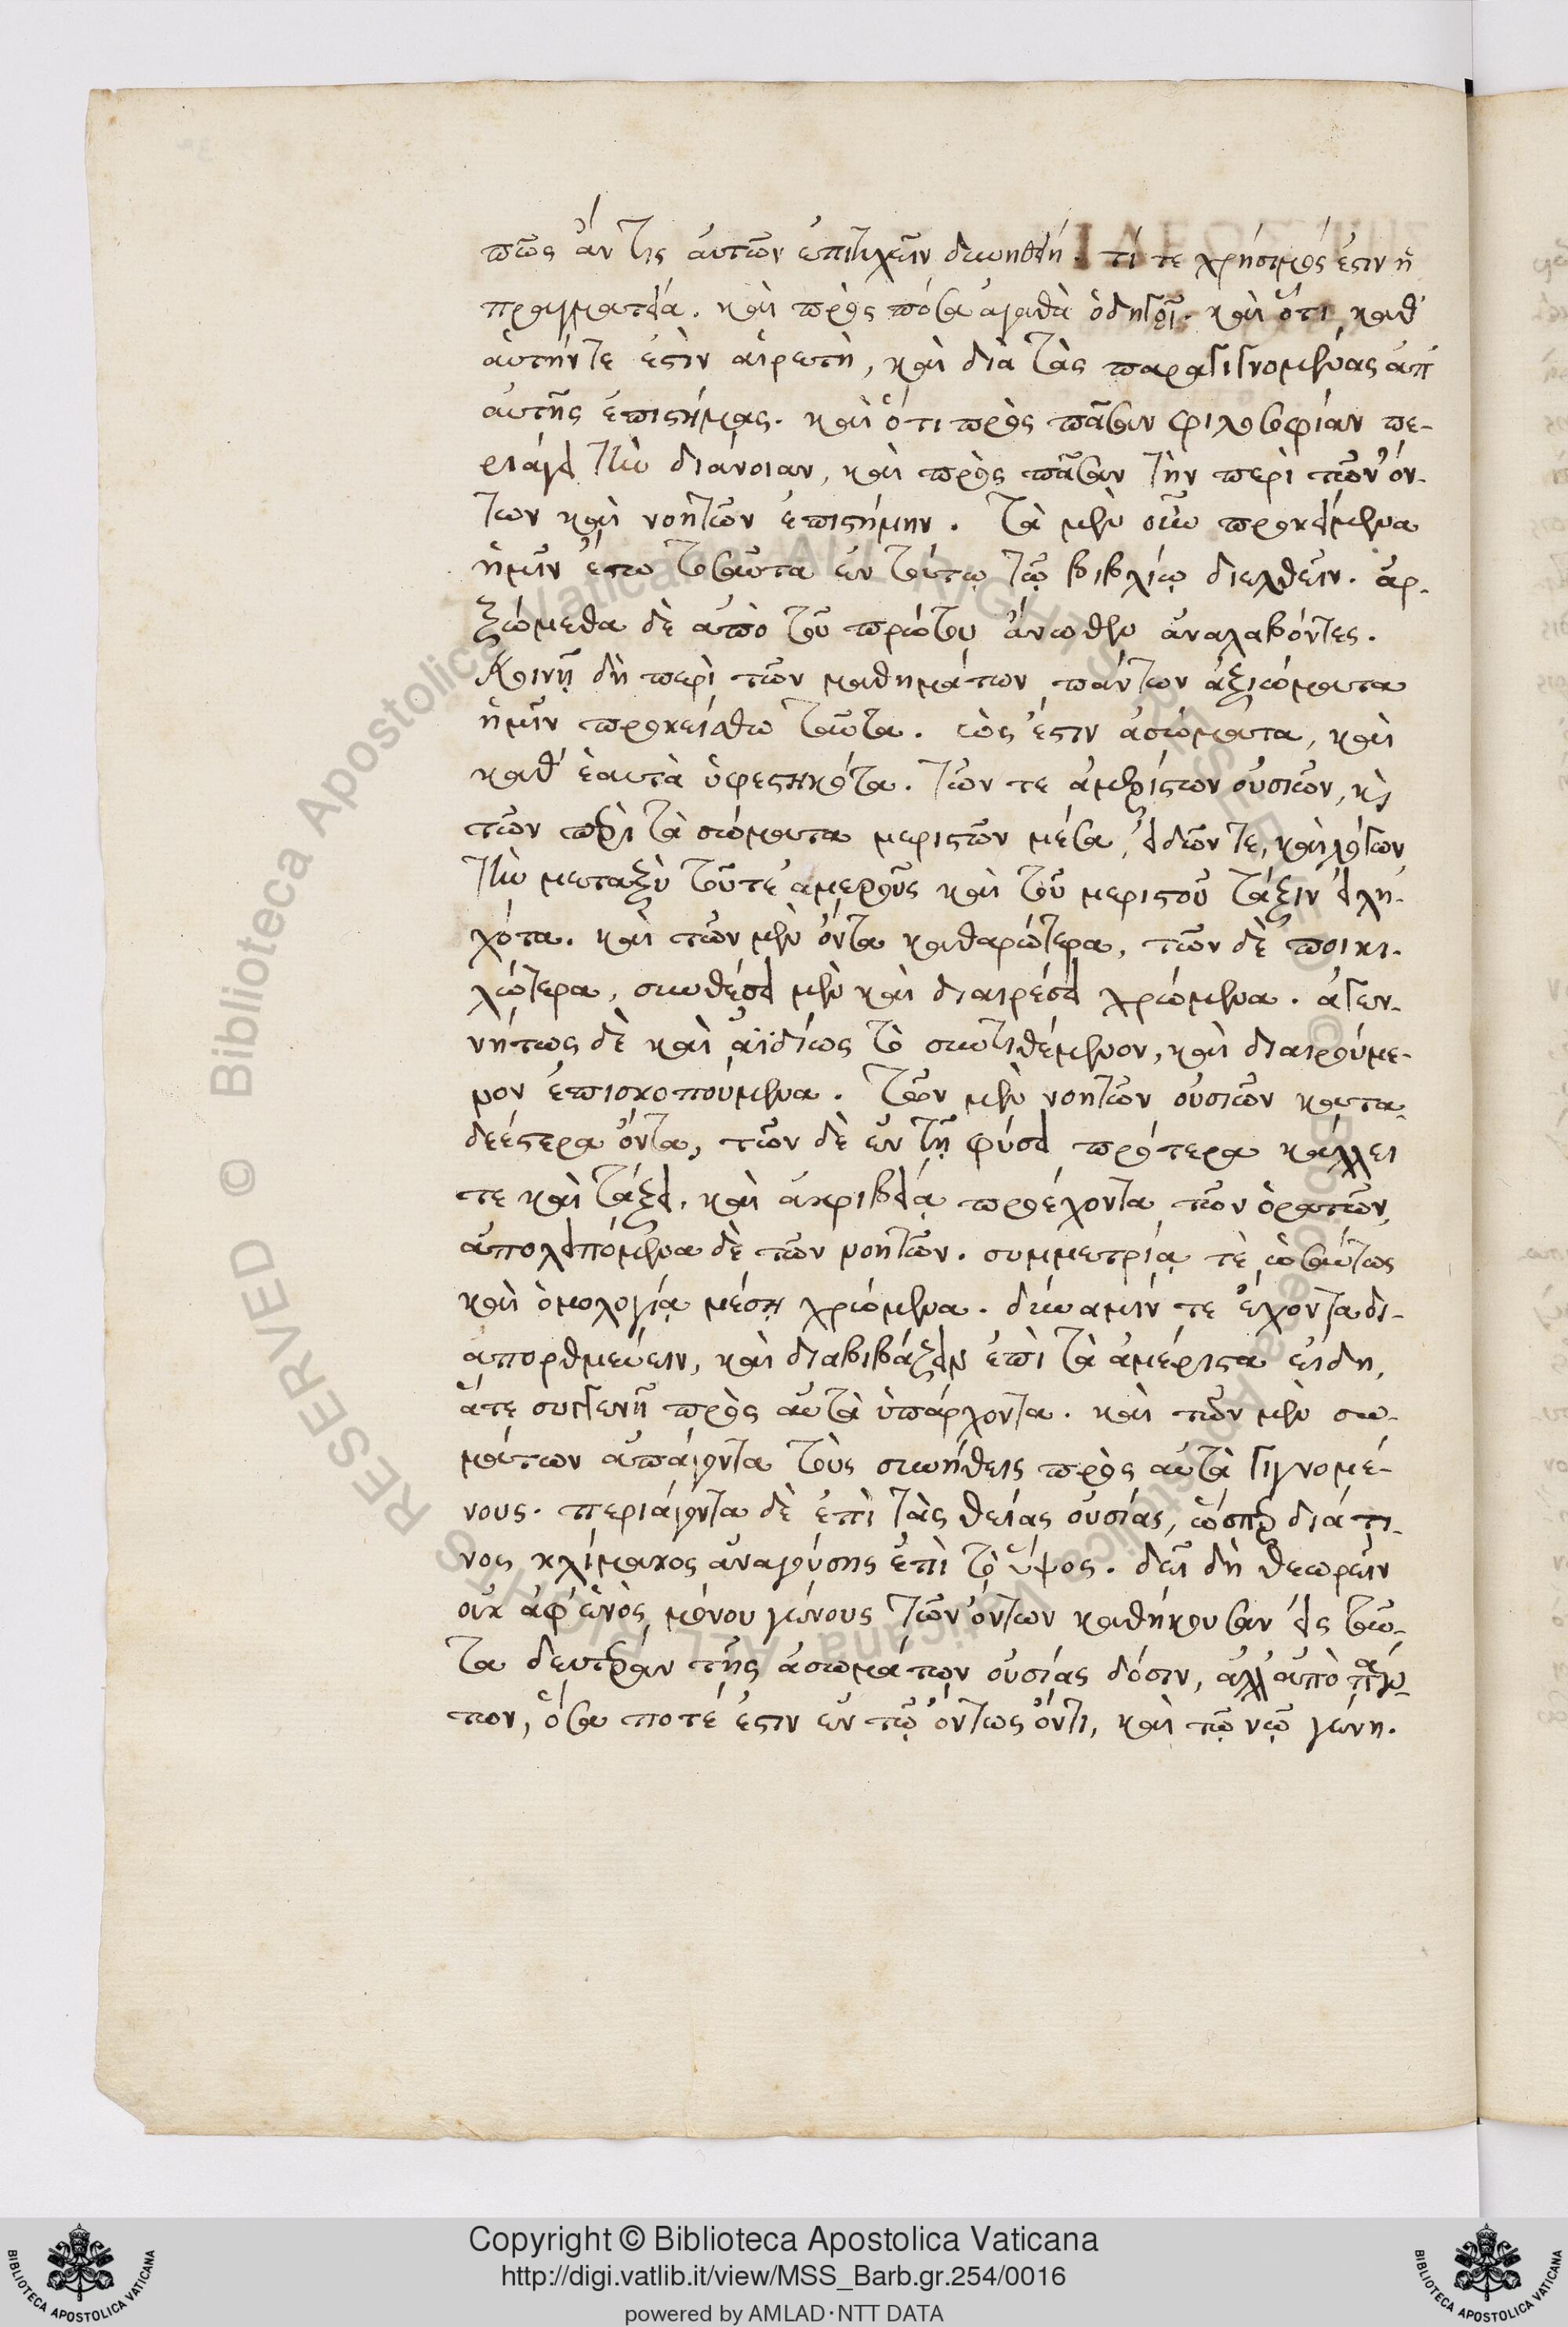 πῶς ἄν τις αὐτῶν ἐπιτυχεῖν δυνηθείη. τί τε χρήσιμός ἐστιν ἡ
πραγματεία. καὶ πρὸς πόσα ἀγαθὰ ὁδηγεῖ. καὶ ὅτι καθ᾽
αὑτήν τε ἐστὶν αἱρετὴ, καὶ διὰ τὰς παραγιγνομένας ἀπ᾽
αὐτῆς ἐπιστήμας. καὶ ὅτι πρὸς πᾶσαν φιλοσοφίαν πε-
ριάγει τὴν διάνοιαν, καὶ πρὸς πᾶσαν τὴν περὶ τῶν ὄν-
των καὶ νοητῶν ἐπιστήμην. Τὰ μὲν οὖν προκείμενα
ἡμῖν ἔστω τοσαῦτα ἐν τούτῳ τῷ βιβλίῳ διελθεῖν. ἀρ-
ξώμεθα δὲ ἀπὸ τοῦ πρώτου ἄνωθεν ἀναλαβόντες.
Κοινῇ δὴ περὶ τῶν μαθημάτων πάντων ἀξιώματα
ἡμῖν προκείσθω ταῦτα. ὡς ἔστιν ἀσώματα, καὶ
καθ᾽ ἑαυτὰ ὑφεστηκότα. τῶν τε ἀμερίστων οὐσιῶν, καὶ
τῶν περὶ τὰ σώματα μεριστῶν μέσα, εἰδῶν τε, καὶ λόγων
τὴν μεταξὺ τοῦ τε ἀμεροῦς καὶ τοῦ μεριστοῦ τάξιν εἰλη-
χότα. καὶ τῶν μὲν ὄντα καθαρώτερα, τῶν δὲ ποικι-
λώτερα, συνθέσει μὲν καὶ διαιρέσει χρώμενα. ἀγεν-
νήτως δὲ καὶ ἀϊδίως τὸ συντιθέμενον, καὶ διαιρούμε-
νον ἐπισκοπούμενα. Τῶν μὲν νοητῶν οὐσιῶν κατα-
δεέστερα ὄντα, τῶν δὲ ἐν τῇ φύσει πρότερα κάλλει
τε καὶ τάξει. καὶ ἀκριβείᾳ προέχοντα τῶν ὁρατῶν,
ἀπολειπόμενα δὲ τῶν νοητῶν. συμμετρίᾳ τὲ ὡσαύτως
καὶ ὁμολογίᾳ μέσῃ χρώμενα. δύναμίν τε ἔχοντα δι-
απορθμεύειν, καὶ διαβιβάζειν ἐπὶ τὰ ἀμέριστα εἴδη,
ἅτε συγγενῆ πρὸς αὐτὰ ὑπάρχοντα. καὶ τῶν μὲν σω-
μάτων ἀπάγοντα τοὺς συνήθεις πρὸς αὐτὰ γιγνομέ-
νους. περιάγοντα δὲ ἐπὶ τὰς θείας οὐσίας, ὥσπερ διά τι-
νος κλίμακος ἀναγούσης ἐπὶ τὸ ὕψος. δεῖ δὴ θεωρεῖν
οὐκ ἀφ᾽ ἑνὸς μόνου γένους τῶν ὄντων καθήκουσαν εἰς ταῦ-
τα δευτέραν τῆς ἀσωμάτων οὐσίας δόσιν, ἀλλ᾽ ἀπὸ πάν-
των, ὅσα ποτέ ἐστιν ἐν τῷ ὄντως ὄντι, καὶ τῷ νῷ γένη.
© Biblioteca Apostolica Vaticana ALL RIGHTS RESERVED © Biblioteca Apostolica Vaticana ALL RIGHTS RESERVED
BIBLIOTECA APOSTOLICA VATICANA
Copyright © Biblioteca Apostolica Vaticana
http://digi.vatlib.it/view/MSS_Barb.gr.254/0016
powered by AMLAD·NTT DATA
BIBLIOTECA APOSTOLICA VATICANA